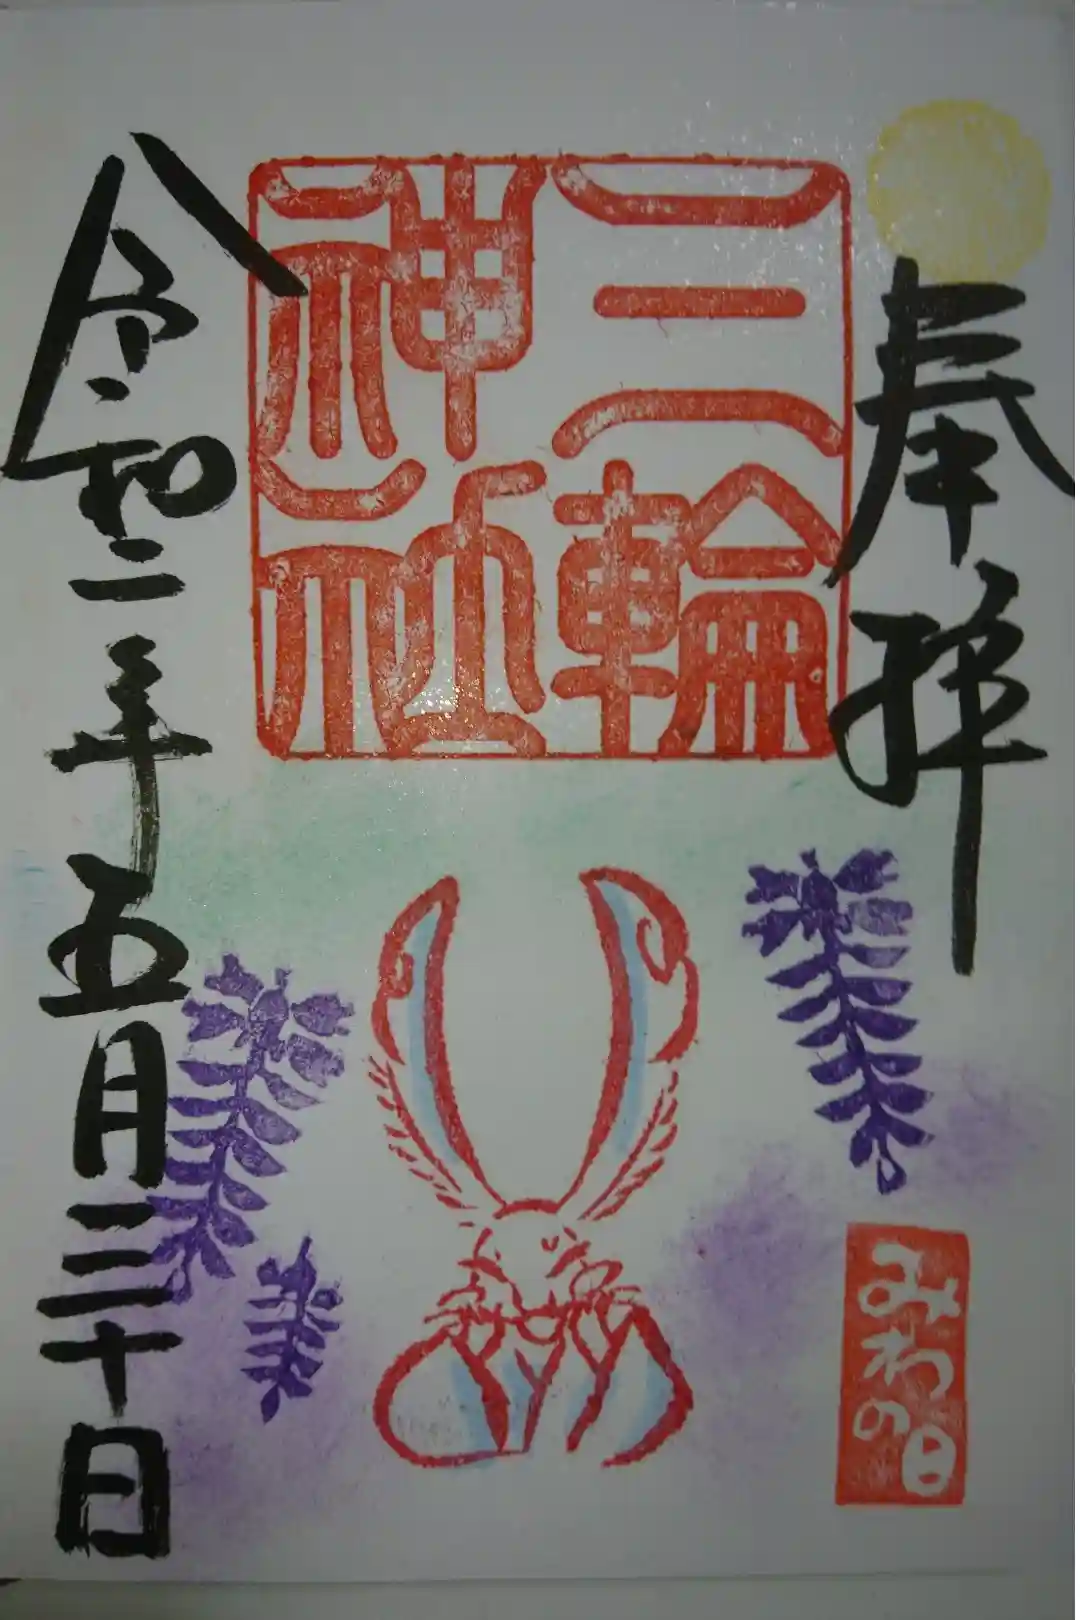 奉拝
みわの日
三輪
神社
令和二年五月三十日